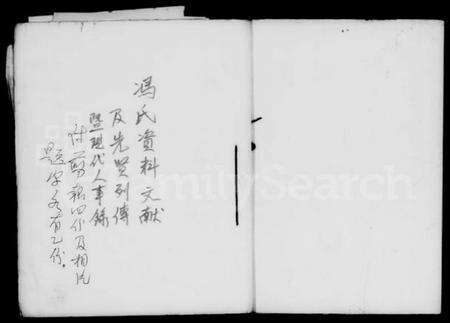 馮氏資料文献
及先贤列傳
暨現代人事錄
附剪稿四份及相片
題字各百乙份。
FamilySearch